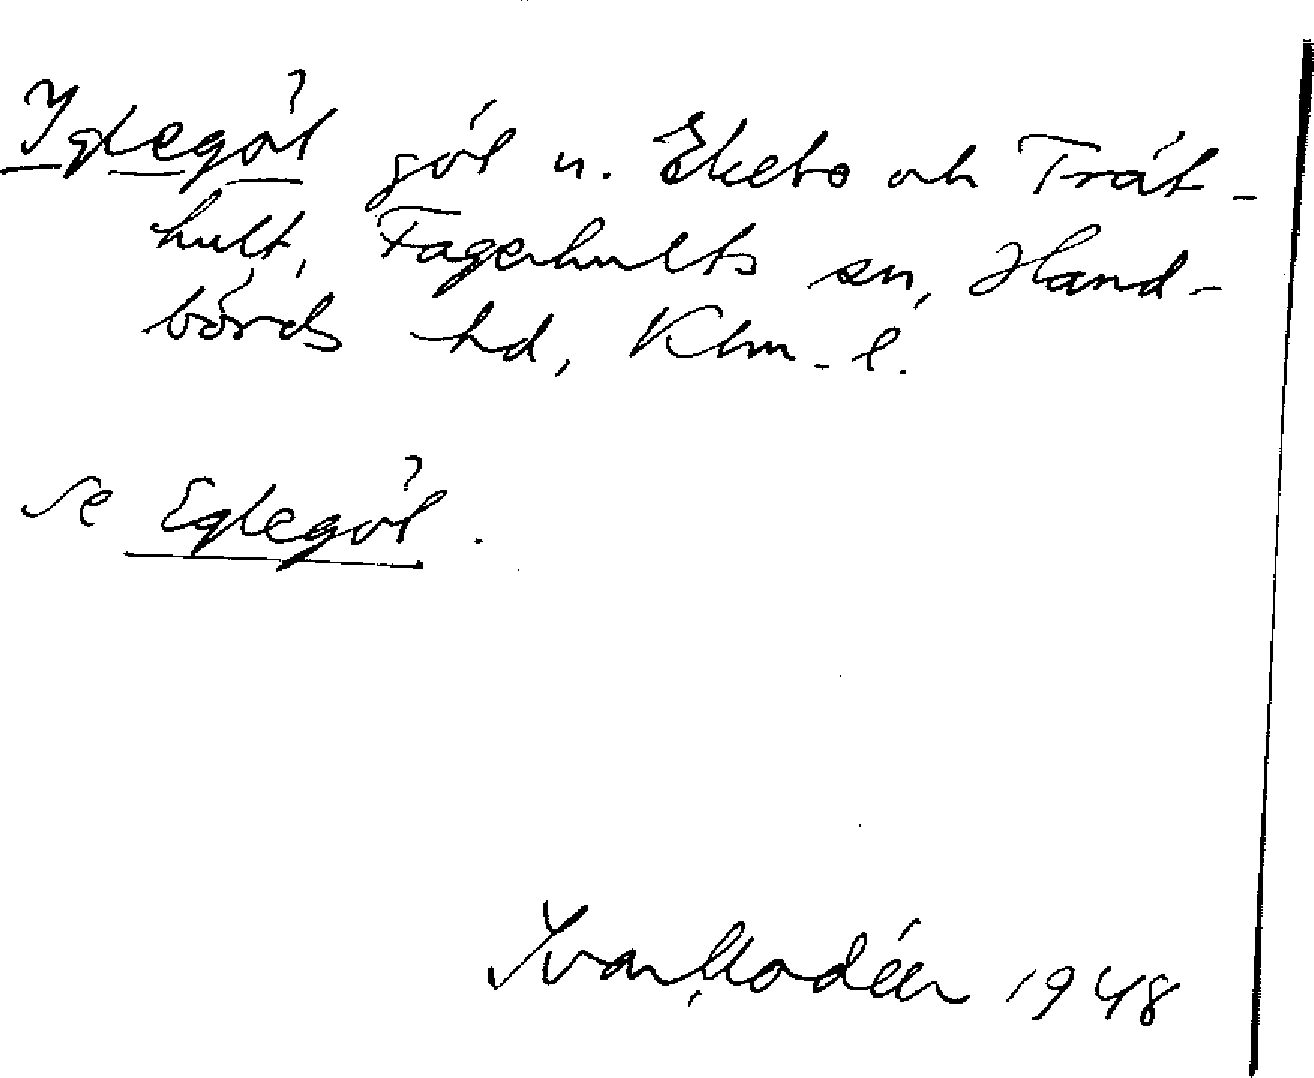 Iglegöl göl n. Ekebo och Trät-
hult, Fagerhults sn, Hand-
börds hd, Klm. l.
se Eglegöl.
Ivar Modéer 1948